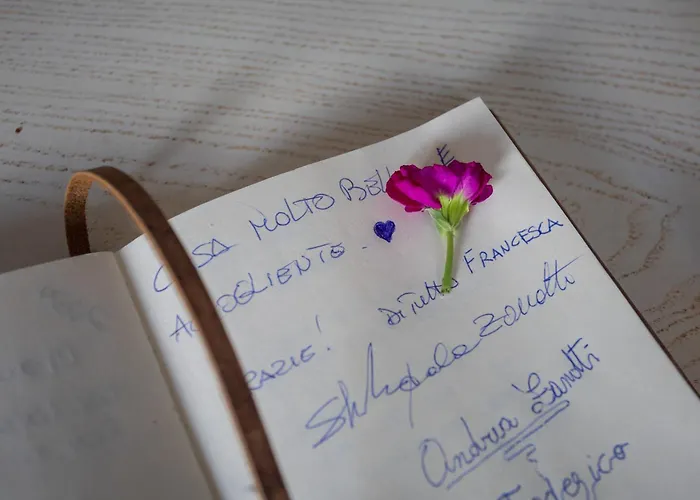 CASA MOLTO BELLA E
ACCOGLIENTE.
GRAZIE! DI TUTTO FRANCESCA
Zanotti
Andrea Zanotti
Federico